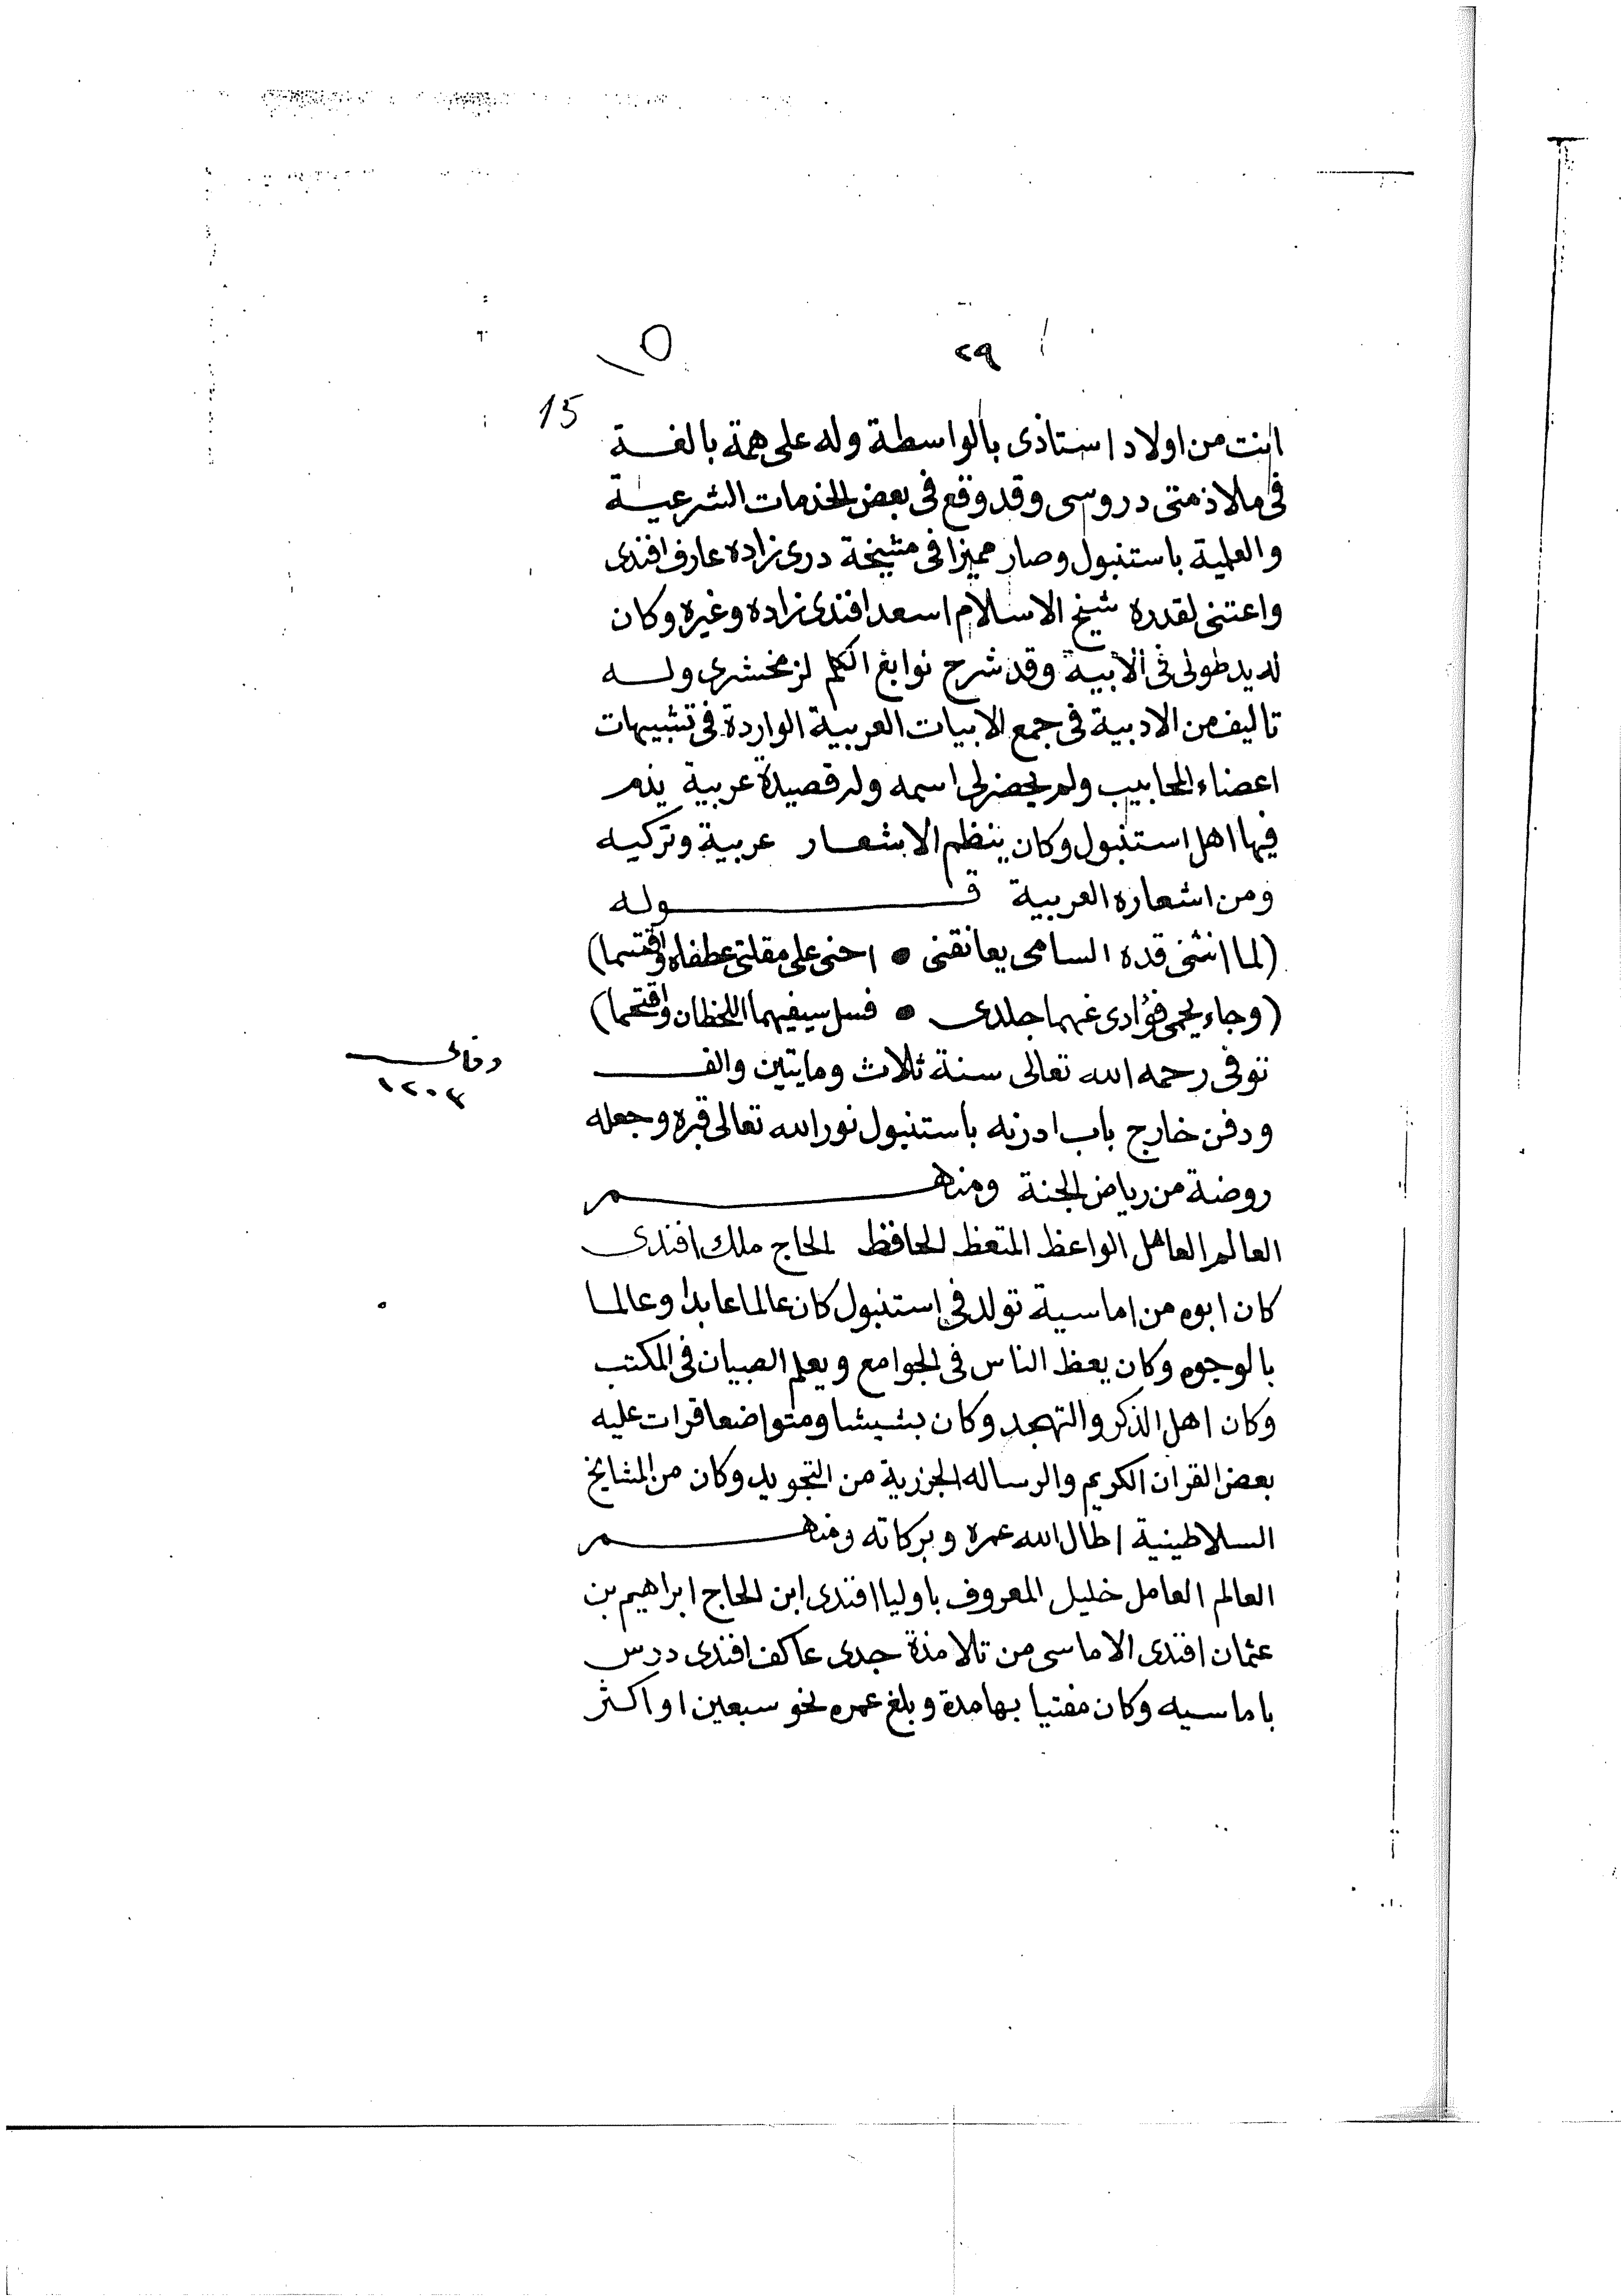 ٢٩
١٥
15
انت من اولاد استاذى بالواسطة وله على همة بالغة
فى ملاذمتى دروسى وقد وقع فى بعض الخدمات الشرعية
والعلمية باستنبول وصار مميزا فى مشيخة درى زاده عارف افندى
واعتنى لقدره شيخ الاسلام اسعد افندى زاده وغيره وكان
له يد طولى فى الأبية وقد شرح نوابغ الكلم لزمخشرى وله
تاليف من الادبية فى جمع الابيات العربية الواردة فى تشبيهات
اعضاء المحابيب ولم يحضر لى اسمه وله قصيدة عربية يذم
فيها اهل استنبول وكان ينظم الاشعار عربية وتركيه
ومن اشعاره العربية قوله
(لما انثنى قده السامى يعانقنى • احنى على مقلتى عطفاه واقتسما)
(وجاء يحمى فؤادى غمهما جلدى • فسل سيفيهما اللحظان واقتحما)
توفى رحمه الله تعالى سنة ثلاث ومايتين والف
وفاتى
١٢٠٣
ودفن خارج باب ادرنه باستنبول نور الله تعالى قبره وجعله
روضة من رياض الجنة ومنهم
العالم العامل الواعظ المتعظ الحافظ الحاج ملك افندى
كان ابوه من اماسية تولد فى استنبول كان عالما عابدا وعالما
بالوجوه وكان يعظ الناس فى الجوامع ويعلم الصبيان فى المكتب
وكان اهل الذكر والتهجد وكان بشيشا ومتواضعا قرات عليه
بعض القران الكريم والرساله الجزرية من التجويد وكان من المشايخ
السلاطينية اطال الله عمره وبركاته ومنهم
العالم العامل خليل المعروف باوليا افندى ابن الحاج ابراهيم بن
عثمان افندى الاماسى من تلامذة جدى عاكف افندى درس
باماسيه وكان مفتيا بها مدة وبلغ عمره نحو سبعين او اكثر